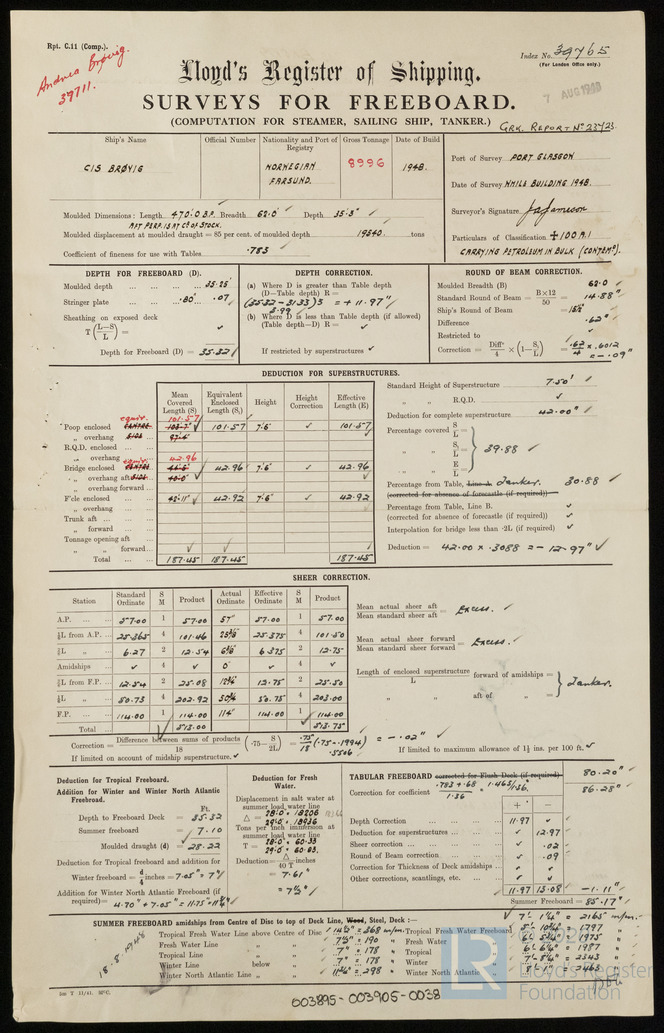 Rpt. C.11 (Comp.).
Index No. 39765
(For London Office only.)
Andrea Brøvig.
39711.
7 AUG 1948
Lloyd's Register of Shipping.
SURVEYS FOR FREEBOARD.
(COMPUTATION FOR STEAMER, SAILING SHIP, TANKER.)
GRK. REPORT Nº 23423.
Ship's Name
Official Number
Nationality and Port of Registry
Gross Tonnage
Date of Build
CIS BRØVIG
NORWEGIAN
FARSUND.
8996
1948.
Port of Survey PORT GLASGOW
Date of Survey WHILE BUILDING 1948.
Surveyor's Signature
Particulars of Classification +100 A.1
CARRYING PETROLEUM IN BULK (CONTEMP.).
Moulded Dimensions: Length 470.0 B.P. Breadth 62.0' Depth 35.3'
AFT PERP. IS AT C. OF STOCK.
Moulded displacement at moulded draught = 85 per cent. of moulded depth 19540 tons
Coefficient of fineness for use with Tables .783
DEPTH FOR FREEBOARD (D).
Moulded depth ... ... ... 35.25'
Stringer plate ... ... .80" .07
Sheathing on exposed deck
T (L−S / L) =
Depth for Freeboard (D) = 35.32
DEPTH CORRECTION.
(a) Where D is greater than Table depth
(D−Table depth) R =
(35.32 − 31.33) 3 = + 11.97"
3.99
(b) Where D is less than Table depth (if allowed)
(Table depth−D) R =
If restricted by superstructures
ROUND OF BEAM CORRECTION.
Moulded Breadth (B) 62.0
Standard Round of Beam = B×12 / 50 = 14.88"
Ship's Round of Beam = 15½
Difference .62"
Restricted to
Correction = Diffce / 4 × (1 − S₁ / L) = .62 / 4 × .6012
= − .09"
DEDUCTION FOR SUPERSTRUCTURES.
Mean Covered Length (S)
Equivalent Enclosed Length (S₁)
Height
Height Correction
Effective Length (E)
Poop enclosed equiv. 101.57 101.57 7'6" 101.57
„ overhang
R.Q.D. enclosed
„ overhang
Bridge enclosed equiv. 42.96 42.96 7'6" 42.96
„ overhang aft
„ overhang forward
F'cle enclosed 42'11" 42.92 7'6" 42.92
„ overhang
Trunk aft
„ forward
Tonnage opening aft
„ „ forward
Total 187.45 187.45 187.45
Standard Height of Superstructure 7.50'
„ „ R.Q.D.
Deduction for complete superstructure 42.00"
Percentage covered S / L =
„ „ S₁ / L = 39.88
„ „ E / L =
Percentage from Table, Line A. Tanker. 30.88
(corrected for absence of forecastle (if required))
Percentage from Table, Line B.
(corrected for absence of forecastle (if required))
Interpolation for bridge less than ·2L (if required)
Deduction = 42.00 × .3088 = − 12.97"
SHEER CORRECTION.
Station
Standard Ordinate
S M
Product
Actual Ordinate
Effective Ordinate
S M
Product
A.P. 57.00 1 57.00 57" 57.00 1 57.00
⅙L from A.P. 25.365 4 101.46 25⅜ 25.375 4 101.50
⅓L „ 6.27 2 12.54 6⅜ 6.375 2 12.75
Amidships 4 0 4
⅓L from F.P. 12.54 2 25.08 12¾ 12.75 2 25.50
⅙L „ 50.73 4 202.92 50¾ 50.75 4 203.00
F.P. 114.00 1 114.00 114" 114.00 1 114.00
Total 513.00 513.75
Mean actual sheer aft
Mean standard sheer aft = Excess.
Mean actual sheer forward
Mean standard sheer forward = Excess.
Length of enclosed superstructure / L forward of amidships =
„ „ aft of „ = Tanker.
Correction = Difference between sums of products / 18 (·75 − S / 2L) = .75 / 18 (.75 − .1994) = − .02"
.5506
If limited on account of midship superstructure.
If limited to maximum allowance of 1½ ins. per 100 ft.
Deduction for Tropical Freeboard.
Addition for Winter and Winter North Atlantic Freeboard.
Ft.
Depth to Freeboard Deck = 35.32
Summer freeboard = 7.10
Moulded draught (d) = 28.22
Deduction for Tropical freeboard and addition for
Winter freeboard = d / 4 inches = 7.05" = 7"
Addition for Winter North Atlantic Freeboard (if
required) = 4.70" + 7.05" = 11.75" = 11¾"
Deduction for Fresh Water.
Displacement in salt water at summer load water line
△ = 28.0 = 18206
29.0 = 18936
Tons per inch immersion at summer load water line
T = 28.0 = 60.33
29.0 = 60.83.
Deduction = △ / 40 T inches
= 7.61"
= 7½"
TABULAR FREEBOARD corrected for Flush Deck (if required) 80.20"
Correction for coefficient .783 + .68 / 1.36 = 1.463 / 1.36 86.28"
+ −
Depth Correction 11.97
Deduction for superstructures 12.97
Sheer correction .02
Round of Beam correction .09
Correction for Thickness of Deck amidships
Other corrections, scantlings, etc.
11.97 13.08 −1.11"
Summer Freeboard = 85.17"
SUMMER FREEBOARD amidships from Centre of Disc to top of Deck Line, Wood, Steel, Deck :— 7' 1¼" = 2165 m/m.
Tropical Fresh Water Line above Centre of Disc 14½" = 368 m/m.
Fresh Water Line „ „ 7½" = 190 „
Tropical Line „ „ 7" = 178 „
Winter Line below „ 7" = 178 „
Winter North Atlantic Line „ „ 11¾" = 298 „
Tropical Fresh Water Freeboard 5' 10¾" = 1797
Fresh Water „ 6' 5¾" = 1975
Tropical „ 6' 6¼" = 1987
Winter „ 7' 8¼" = 2343
Winter North Atlantic „ 8' 1" = 2463
18.8.1948
003895-003905-0038
LR
Lloyd's Register
Foundation